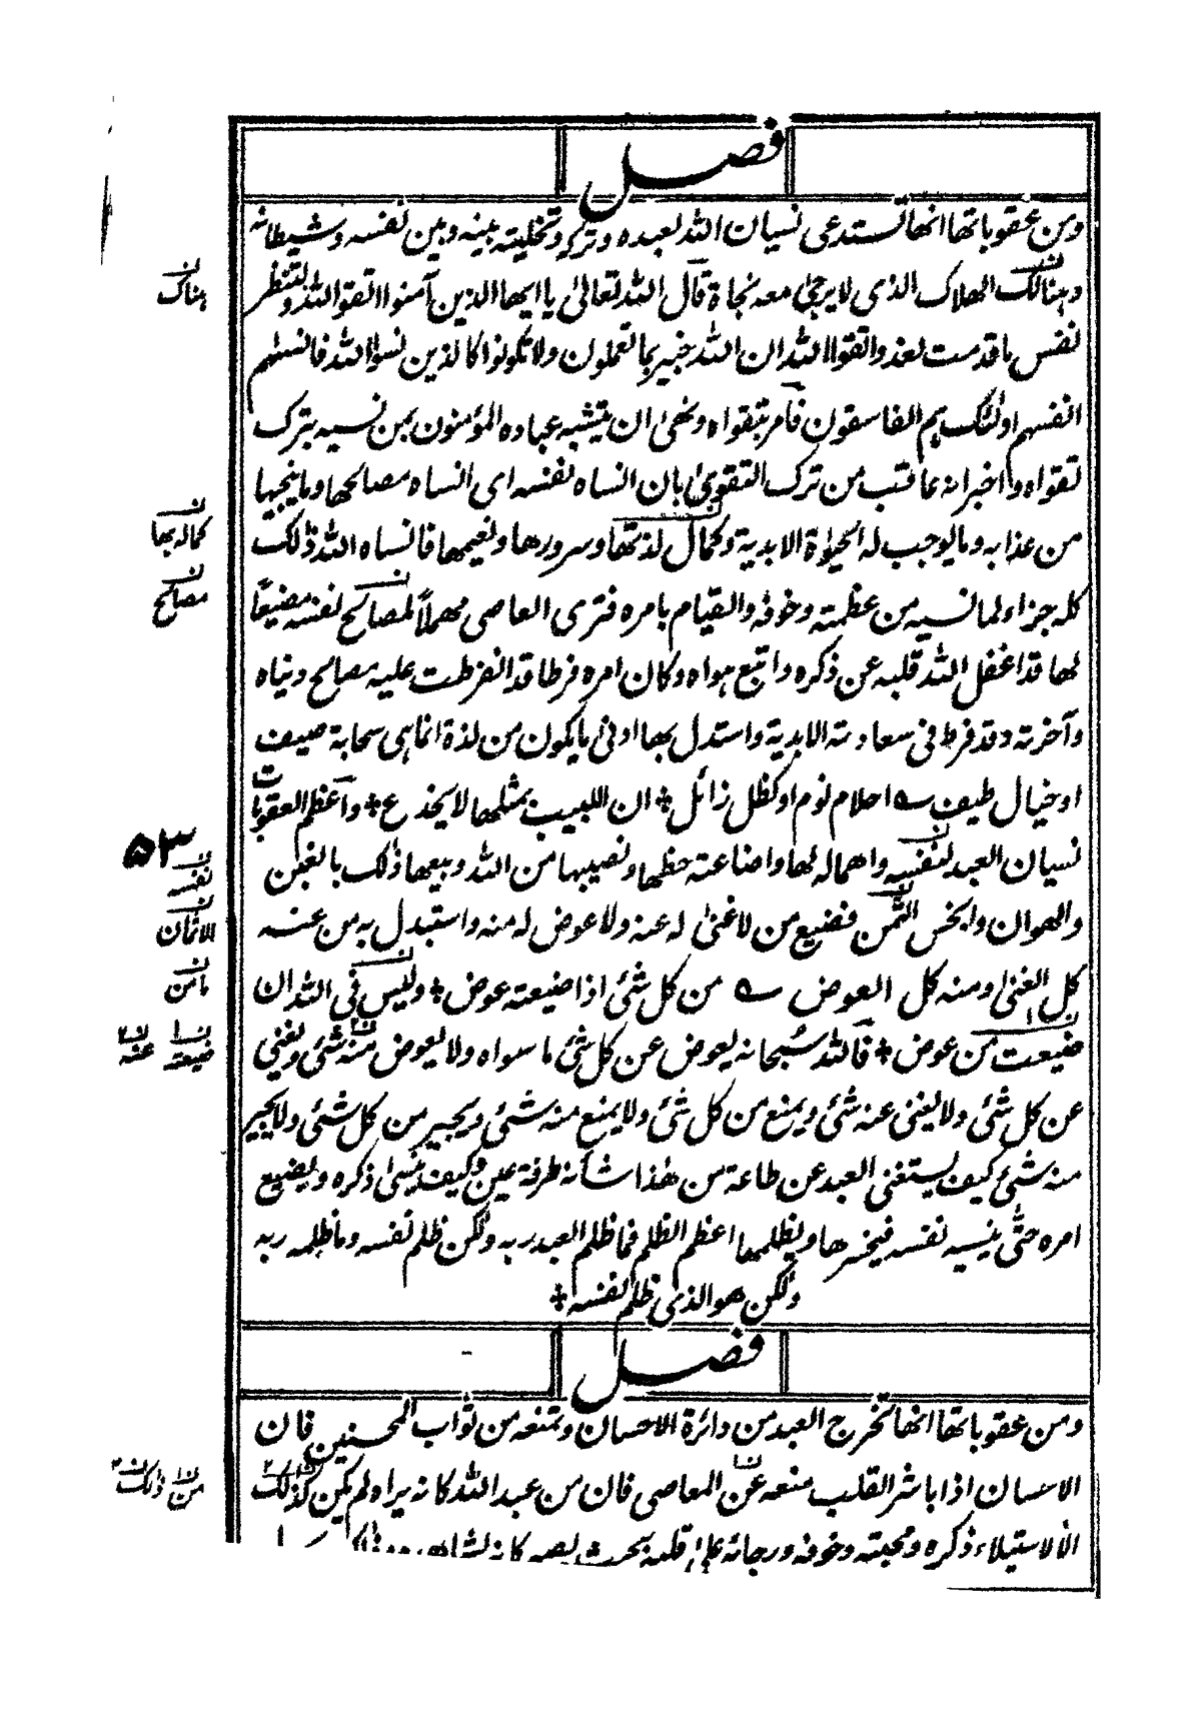 فصل
ومن عقوباتها انها تستدعى نسيان الله لعبده وتركه وتخليته بينه وبين نفسه وشيطانه
وهنالك الهلاك الذى لا يرجى معه نجاة قال الله تعالى يا ايها الذين آمنوا اتقوا الله ولتنظر
نفس ما قدمت لغد واتقوا الله ان الله خبير بما تعملون ولا تكونوا كالذين نسوا الله فانسٰهم
انفسهم اولٰئك هم الفاسقون فامر بتقواه ونهى ان يتشبه عباده المؤمنون بمن نسيه بترك
تقواه واخبر انه عاقب من ترك التقوىٰ بان انساه نفسه اى انساه مصالحها وما ينجيها
من عذابه وما يوجب له الحيٰوة الابدية وكمال لذتها وسرورها ونعيمها فانساه الله ذٰلك
كله جزاء لما نسيه من عظمته وخوفه والقيام بامره فترى العاصى مهملاً لمصالح نفسه مضيعاً
لها قد اغفل الله قلبه عن ذكره واتبع هواه وكان امره فرطا قد انفرطت عليه مصالح دنياه
وآخرته وقد فرط فى سعادته الابدية واستدل بها ادنى ما يكون من لذة انما هى سحابة صيف
او خيال طيف ؎ احلام نوم او كظل زائل ٭ ان اللبيب بمثلها لا يخدع ٭ واعظم العقوبات
نسيان العبد لنفسه واهماله لها واضاعته حظها ونصيبها من الله وبيعها ذٰلك بالغبن
والهوان وابخس الثمن فضيع من لا غنىٰ له عنه ولا عوض له منه واستبدل به من عنه
كل الغنىٰ او منه كل العوض ؎ من كل شئ اذا ضيعته عوض ٭ وليس فى الله ان
ضيعت من عوض ٭ فالله سبحانه يعوض عن كل شئ ما سواه ولا يعوض منه شئ ويغنى
عن كل شئ ولا يغنى عنه شئ ويمنع من كل شئ ولا يمنع منه شئ ويجير من كل شئ ولا يجير
منه شئ كيف يستغنى العبد عن طاعة من هٰذا شأنه طرفة عين وكيف ينسىٰ ذكره ويضيع
امره حتّٰى ينسيه نفسه فيخسرها ويظلمها اعظم الظلم فما ظلم العبد ربه ولٰكن ظلم نفسه وما ظلمه ربه
ولٰكن هو الذى ظلم نفسه ٭
فصل
ومن عقوباتها انها تخرج العبد من دائرة الاحسان وتمنعه من ثواب المحسنين فان
الاحسان اذا باشر القلب منعه عن المعاصى فان من عبد الله كانه يراه لم يكن كذٰلك
الا لاستيلاء ذكره ومحبته وخوفه ورجائه علىٰ قلبه بحيث يصير كانه يشاهده
هناك
كماله بها
مصالح
٥٣
نفسه
الاثمان
ما من
ضيعته
عنه
من
ذٰلك